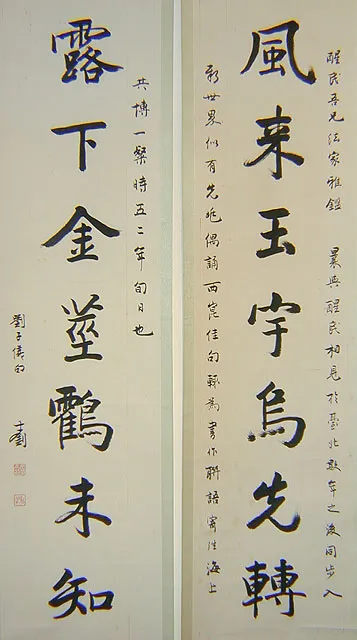 醒民吾兄法家雅鑑　曩與醒民相見於臺北數年之後同步入
風来玉宇烏先轉
新世界似有先兆偶誦西崑佳句輒為書作聯語寄往海上
共博一粲時五二年旬日也
露下金莖鸖未知
劉子